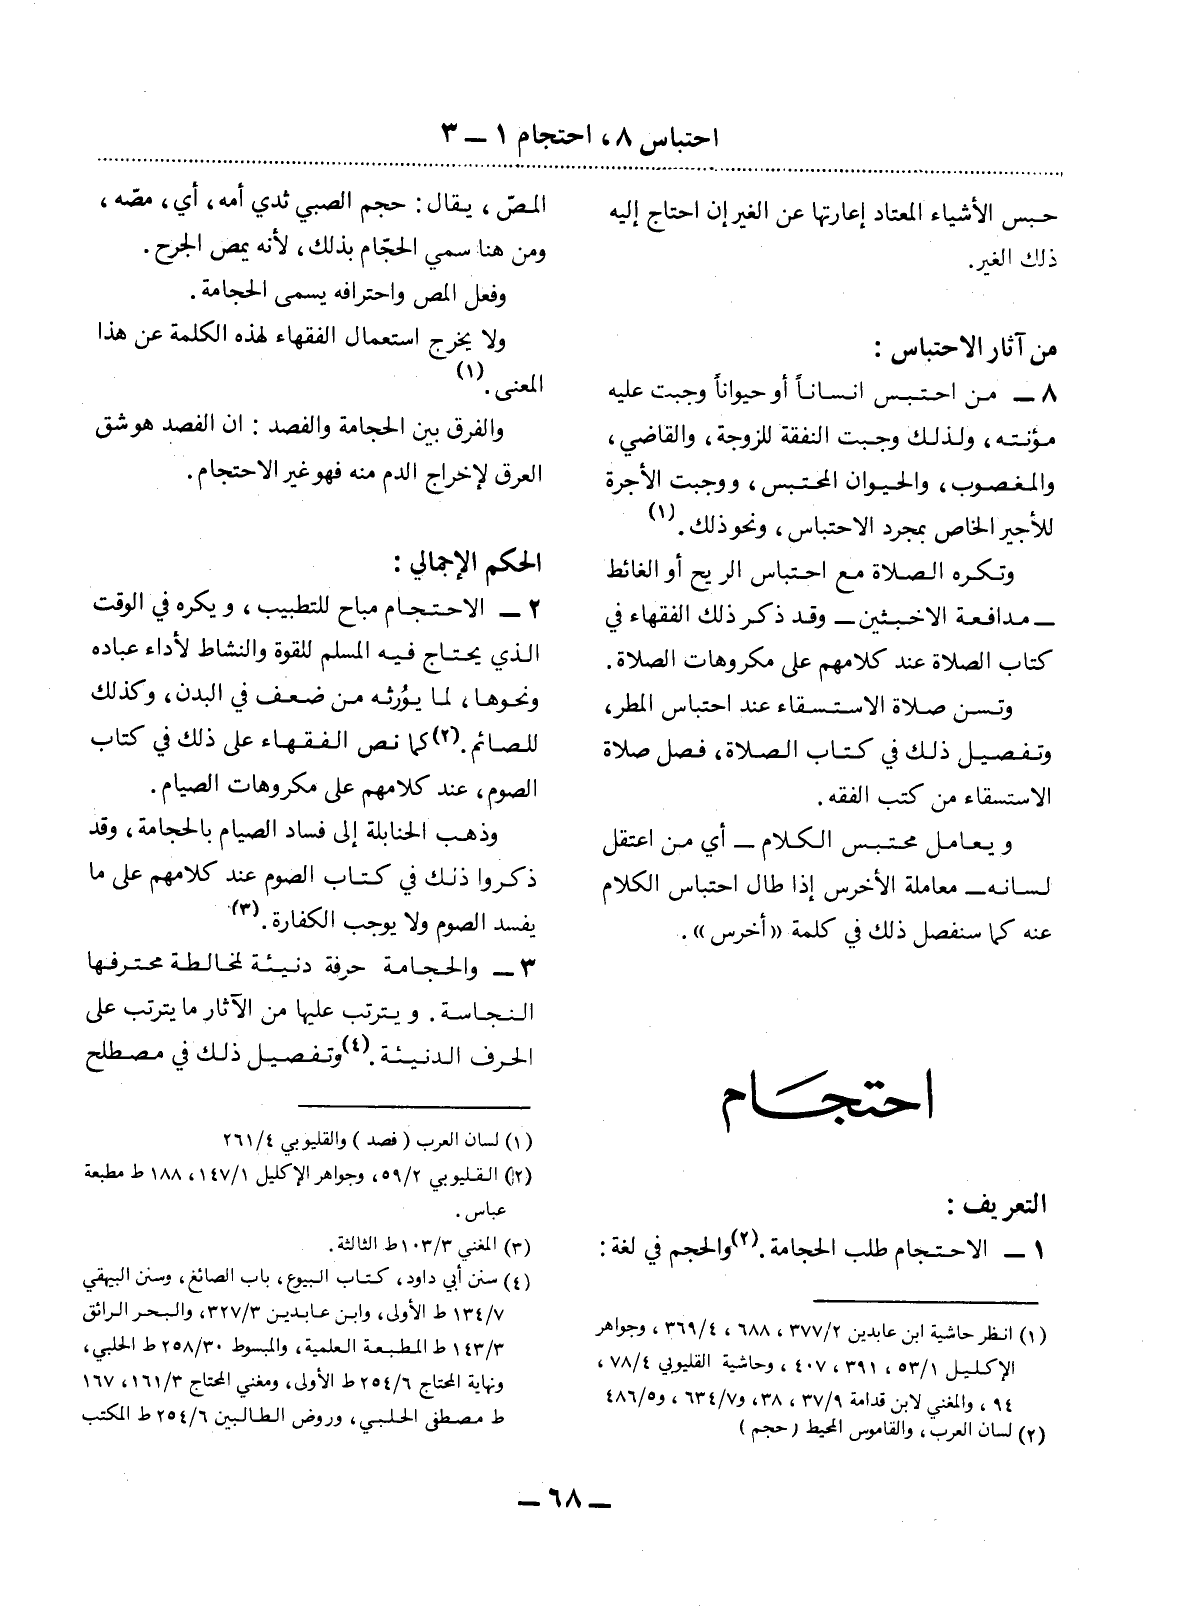 احتباس ٨، احتجام ١ ــ ٣
حبس الأشياء المعتاد إعارتها عن الغير إن احتاج إليه
ذلك الغير.
من آثار الاحتباس :
٨ ــ من احتبس انساناً أو حيواناً وجبت عليه
مؤنته، ولذلك وجبت النفقة للزوجة، والقاضي،
والمغصوب، والحيوان المحتبس، ووجبت الأجرة
للأجير الخاص بمجرد الاحتباس، ونحو ذلك. (١)
وتكره الصلاة مع احتباس الريح أو الغائط
ــ مدافعة الاخبثين ــ وقد ذكر ذلك الفقهاء في
كتاب الصلاة عند كلامهم على مكروهات الصلاة.
وتسن صلاة الاستسقاء عند احتباس المطر،
وتفصيل ذلك في كتاب الصلاة، فصل صلاة
الاستسقاء من كتب الفقه.
ويعامل محتبس الكلام ــ أي من اعتقل
لسانه ــ معاملة الأخرس إذا طال احتباس الكلام
عنه كما سنفصل ذلك في كلمة «أخرس».
احتجام
التعريف :
١ ــ الاحتجام طلب الحجامة. (٢) والحجم في لغة :
(١) انظر حاشية ابن عابدين ٣٧٧/٢، ٦٨٨، ٣٦٩/٤، وجواهر
الإكليل ٥٣/١، ٣٩١، ٤٠٧، وحاشية القليوبي ٧٨/٤،
٩٤، والمغني لابن قدامة ٣٧/٩، ٣٨، و٦٣٤/٧، و٤٨٦/٥
(٢) لسان العرب، والقاموس المحيط (حجم)
المصّ، يقال : حجم الصبي ثدي أمه، أي، مصّه،
ومن هنا سمي الحجّام بذلك، لأنه يمص الجرح.
وفعل المص واحترافه يسمى الحجامة.
ولا يخرج استعمال الفقهاء لهذه الكلمة عن هذا
المعنى. (١)
والفرق بين الحجامة والفصد : ان الفصد هو شق
العرق لإخراج الدم منه فهو غير الاحتجام.
الحكم الإجمالي :
٢ ــ الاحتجام مباح للتطبيب، ويكره في الوقت
الذي يحتاج فيه المسلم للقوة والنشاط لأداء عباده
ونحوها، لما يوُرثه من ضعف في البدن، وكذلك
للصائم. (٢) كما نص الفقهاء على ذلك في كتاب
الصوم، عند كلامهم على مكروهات الصيام.
وذهب الحنابلة إلى فساد الصيام بالحجامة، وقد
ذكروا ذلك في كتاب الصوم عند كلامهم على ما
يفسد الصوم ولا يوجب الكفارة. (٣)
٣ ــ والحجامة حرفة دنيئة لمخالطة محترفها
النجاسة. ويترتب عليها من الآثار ما يترتب على
الحرف الدنيئة. (٤) وتفصيل ذلك في مصطلح
(١) لسان العرب (فصد) والقليوبي ٢٦١/٤
(٢) القليوبي ٥٩/٢، وجواهر الإكليل ١٤٧/١، ١٨٨ ط مطبعة
عباس.
(٣) المغني ١٠٣/٣ ط الثالثة.
(٤) سنن أبي داود، كتاب البيوع، باب الصائغ، وسنن البيهقي
١٣٤/٧ ط الأولى، وابن عابدين ٣٢٧/٣، والبحر الرائق
١٤٣/٣ ط المطبعة العلمية، والمبسوط ٢٥٨/٣٠ ط الحلبي،
ونهاية المحتاج ٢٥٤/٦ ط الأولى، ومغني المحتاج ١٦١/٣، ١٦٧
ط مصطفى الحلبي، وروض الطالبين ٢٥٤/٦ ط المكتب
ــ ٦٨ ــ